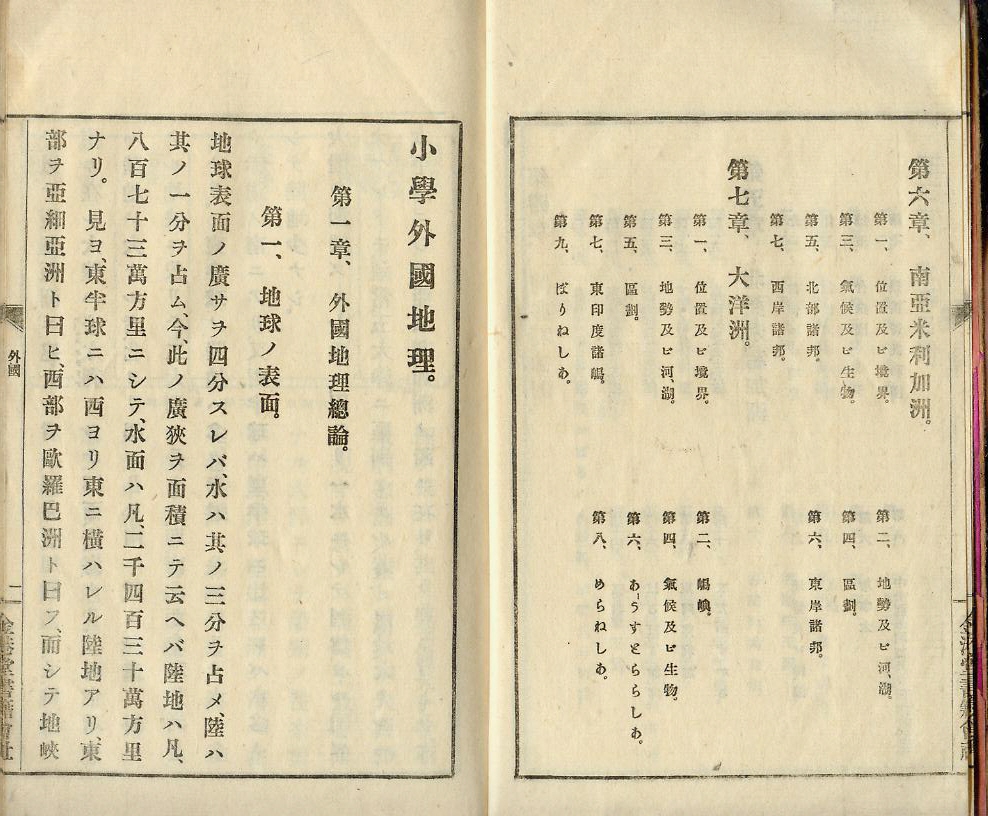 第六章、南亞米利加洲。
第一、位置及ビ境界。
第二、地勢及ビ河、湖。
第三、氣候及ビ生物。
第四、區劃。
第五、北部諸邦。
第六、東岸諸邦。
第七、西岸諸邦。
第七章、大洋洲。
第一、位置及ビ境界。
第二、嶋嶼。
第三、地勢及ビ河、湖。
第四、氣候及ビ生物。
第五、區劃。
第六、あうすとららしあ。
第七、東印度諸嶋。
第八、めらねしあ。
第九、ぽりねしあ。
小學外國地理。
第一章、外國地理總論。
第一、地球ノ表面。
地球表面ノ廣サヲ四分スレバ、水ハ其ノ三分ヲ占メ、陸ハ
其ノ一分ヲ占ム、今、此ノ廣狹ヲ面積ニテ云ヘバ陸地ハ凡、
八百七十三萬方里ニシテ、水面ハ凡、二千四百三十萬方里
ナリ。見ヨ、東半球ニハ西ヨリ東ニ橫ハレル陸地アリ、東
部ヲ亞細亞洲ト曰ヒ、西部ヲ歐羅巴洲ト曰フ、而シテ地峽
外國